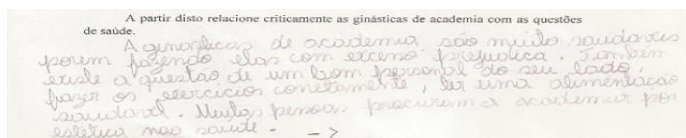 A partir disto relacione criticamente as ginásticas de academia com as questões
de saúde.
A ginasticas de academia são muito saudaveis
porem fazendo elas com exceso prejudica. Também
existe a questão de um bom personal do seu lado,
fazer os exercícios corretamente, ter uma alimentacão
saudavel. Muitas pessoas procuram a academia por
estética não saúde. ->